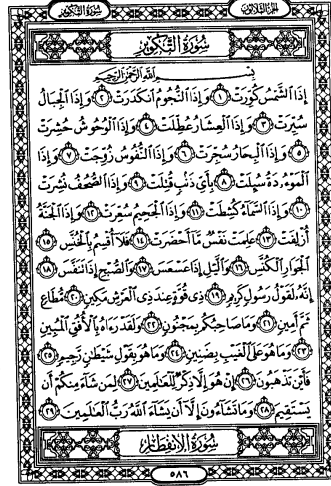 سُورَةُ التَّكْوِيرِ الجُزْءُ الثَّلَاثُونَ
سُورَةُ التَّكْوِيرِ
بِسْمِ اللَّهِ الرَّحْمَٰنِ الرَّحِيمِ
إِذَا الشَّمْسُ كُوِّرَتْ ١ وَإِذَا النُّجُومُ انْكَدَرَتْ ٢ وَإِذَا الْجِبَالُ
سُيِّرَتْ ٣ وَإِذَا الْعِشَارُ عُطِّلَتْ ٤ وَإِذَا الْوُحُوشُ حُشِرَتْ
٥ وَإِذَا الْبِحَارُ سُجِّرَتْ ٦ وَإِذَا النُّفُوسُ زُوِّجَتْ ٧ وَإِذَا
الْمَوْءُۥدَةُ سُئِلَتْ ٨ بِأَيِّ ذَنْبٍ قُتِلَتْ ٩ وَإِذَا الصُّحُفُ نُشِرَتْ
١٠ وَإِذَا السَّمَاءُ كُشِطَتْ ١١ وَإِذَا الْجَحِيمُ سُعِّرَتْ ١٢ وَإِذَا الْجَنَّةُ
أُزْلِفَتْ ١٣ عَلِمَتْ نَفْسٌ مَّا أَحْضَرَتْ ١٤ فَلَا أُقْسِمُ بِالْخُنَّسِ ١٥
الْجَوَارِ الْكُنَّسِ ١٦ وَاللَّيْلِ إِذَا عَسْعَسَ ١٧ وَالصُّبْحِ إِذَا تَنَفَّسَ ١٨
إِنَّهُ لَقَوْلُ رَسُولٍ كَرِيمٍ ١٩ ذِي قُوَّةٍ عِنْدَ ذِي الْعَرْشِ مَكِينٍ ٢٠ مُطَاعٍ
ثَمَّ أَمِينٍ ٢١ وَمَا صَاحِبُكُم بِمَجْنُونٍ ٢٢ وَلَقَدْ رَءَاهُ بِالْأُفُقِ الْمُبِينِ
٢٣ وَمَا هُوَ عَلَى الْغَيْبِ بِضَنِينٍ ٢٤ وَمَا هُوَ بِقَوْلِ شَيْطَٰنٍ رَّجِيمٍ ٢٥
فَأَيْنَ تَذْهَبُونَ ٢٦ إِنْ هُوَ إِلَّا ذِكْرٌ لِّلْعَٰلَمِينَ ٢٧ لِمَن شَاءَ مِنكُمْ أَن
يَسْتَقِيمَ ٢٨ وَمَا تَشَاءُونَ إِلَّا أَن يَشَاءَ اللَّهُ رَبُّ الْعَٰلَمِينَ ٢٩
سُورَةُ الِانفِطَارِ
٥٨٦